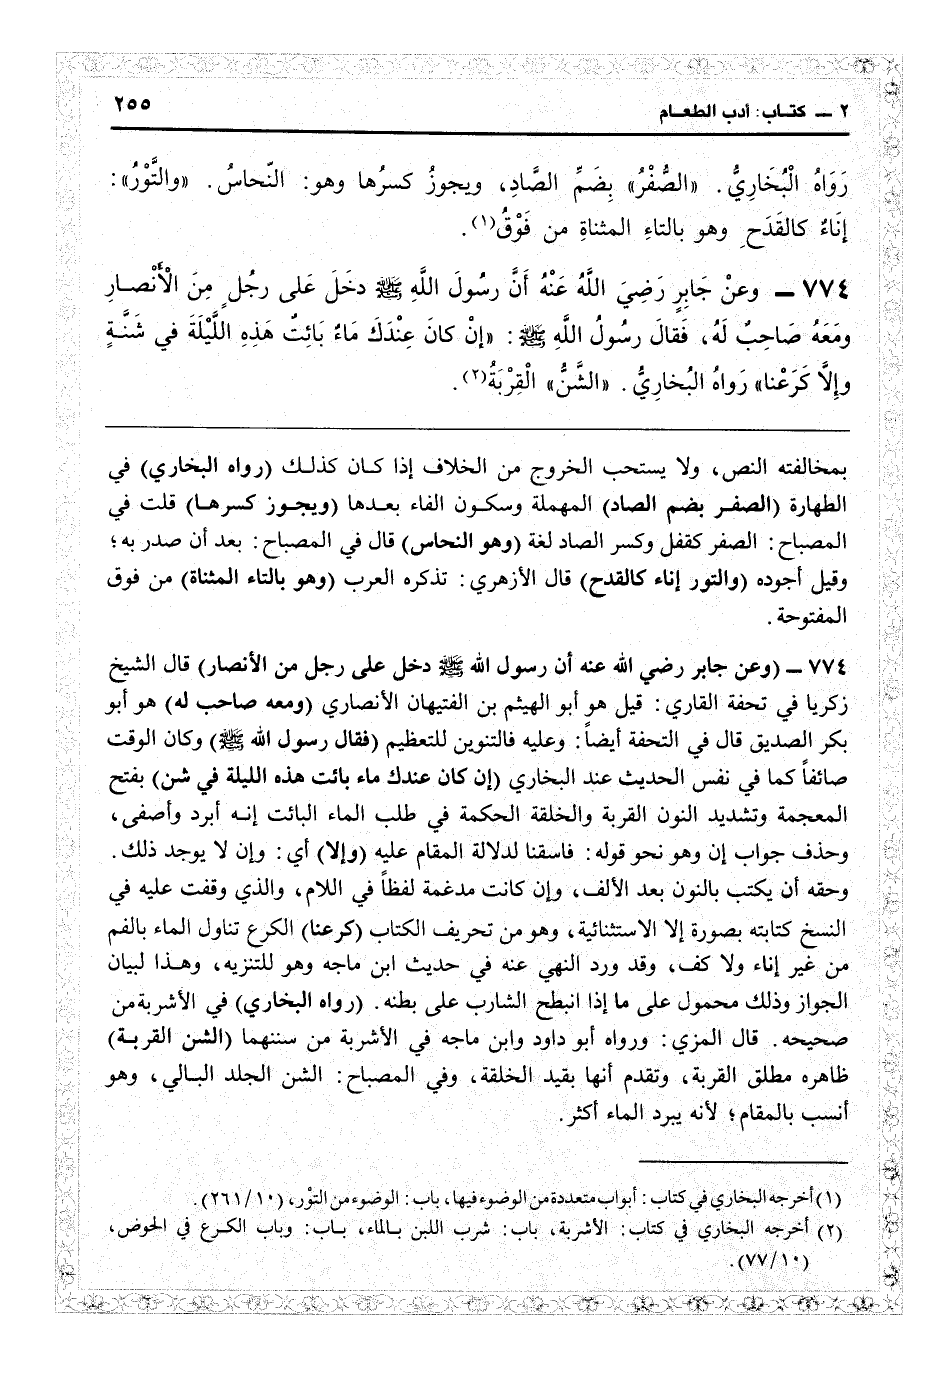 ٢ ــ كتـاب: أدب الطعـام
٢٥٥
رَوَاهُ الْبُخَارِيُّ. «الصُّفْرُ» بِضَمِّ الصَّادِ، ويجوزُ كسرُها وهو: النّحاسُ. «والتَّوْرُ»:
إنَاءٌ كالقَدَحِ وهو بالتاءِ المثناةِ من فَوْقُ(١).
٧٧٤ ــ وعنْ جَابِرٍ رَضِيَ اللَّهُ عَنْهُ أَنَّ رسُولَ اللَّهِ ﷺ دخَلَ عَلى رجُلٍ مِنَ الْأَنْصـارِ
ومَعَهُ صَاحِبٌ لَهُ، فَقالَ رسُولُ اللَّهِ ﷺ: «إنْ كانَ عِنْدَكَ مَاءٌ بَائِتٌ هَذِهِ اللَّيْلَةَ في شَنَّةٍ
وإلَّا كَرَعْنا» رَواهُ البُخارِيُّ. «الشَّنُّ» الْقِرْبَةُ(٢).
بمخالفته النص، ولا يستحب الخروج من الخلاف إذا كـان كذلـك (رواه البخاري) في
الطهارة (الصفـر بضم الصاد) المهملة وسكـون الفاء بعـدها (ويجـوز كسرهـا) قلت في
المصباح: الصفر كقفل وكسر الصاد لغة (وهو النحاس) قال في المصباح: بعد أن صدر به؛
وقيل أجوده (والتور إناء كالقدح) قال الأزهري: تذكره العرب (وهو بالتاء المثناة) من فوق
المفتوحة.
٧٧٤ ــ (وعن جابر رضي الله عنه أن رسول الله ﷺ دخل على رجل من الأنصار) قال الشيخ
زكريا في تحفة القاري: قيل هو أبو الهيثم بن الفتيهان الأنصاري (ومعه صاحب له) هو أبو
بكر الصديق قال في التحفة أيضاً: وعليه فالتنوين للتعظيم (فقال رسول الله ﷺ) وكان الوقت
صائفاً كما في نفس الحديث عند البخاري (إن كان عندك ماء بائت هذه الليلة في شن) بفتح
المعجمة وتشديد النون القربة والخلقة الحكمة في طلب الماء البائت إنـه أبرد وأصفى،
وحذف جواب إن وهو نحو قوله: فاسقنا لدلالة المقام عليه (وإلا) أي: وإن لا يوجد ذلك.
وحقه أن يكتب بالنون بعد الألف، وإن كانت مدغمة لفظاً في اللام، والذي وقفت عليه في
النسخ كتابته بصورة إلا الاستثنائية، وهو من تحريف الكتاب (كرعنا) الكرع تناول الماء بالفم
من غير إناء ولا كف، وقد ورد النهي عنه في حديث ابن ماجه وهو للتنزيه، وهـذا لبيان
الجواز وذلك محمول على ما إذا انبطح الشارب على بطنه. (رواه البخاري) في الأشربة من
صحيحه. قال المزي: ورواه أبو داود وابن ماجه في الأشربة من سننهما (الشن القربـة)
ظاهره مطلق القربة، وتقدم أنها بقيد الخلقة، وفي المصباح: الشن الجلد البـالي، وهو
أنسب بالمقام؛ لأنه يبرد الماء أكثر.
(١) أخرجه البخاري في كتاب: أبواب متعددة من الوضوء فيها، باب: الوضوء من التوْر، (٢٦١/١٠).
(٢) أخرجه البخاري في كتاب: الأشربة، باب: شرب اللبن بـالماء، بـاب: وباب الكـرع في الحوض،
(٧٧/١٠).